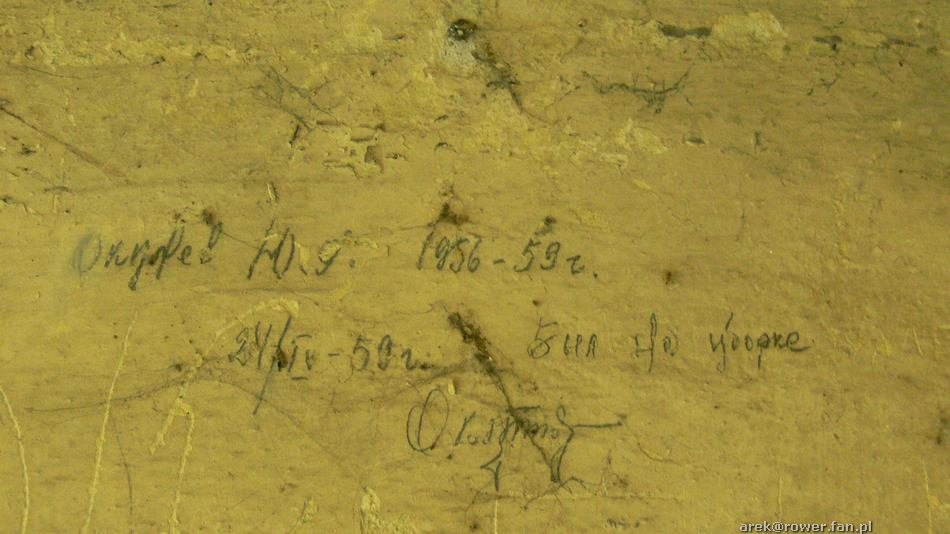 Ю.Я. 1956-59 г.
24/IV-59 г. Был на уборке
arek@rower.fan.pl